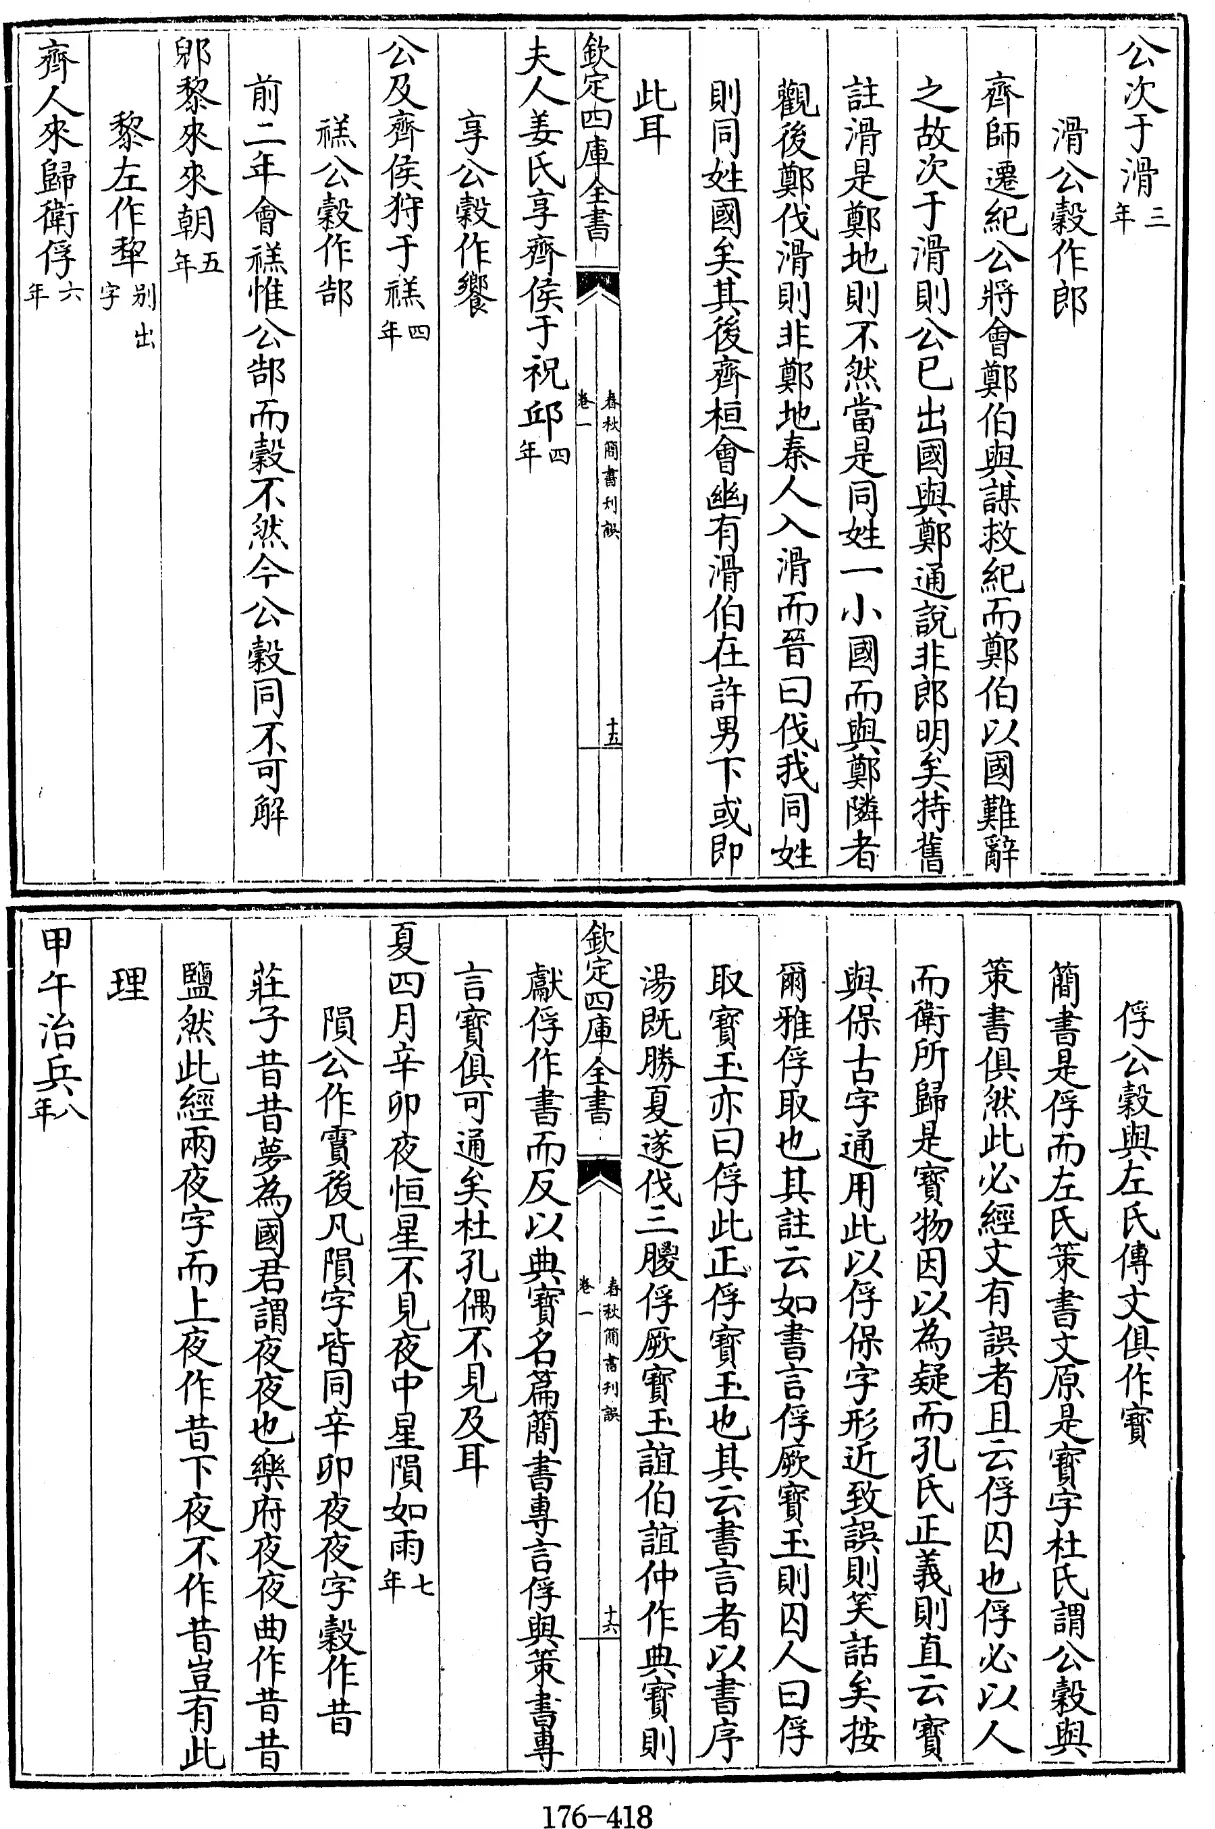 公次于滑三年
滑公穀作郎
齊師遷紀公將會鄭伯與謀救紀而鄭伯以國難辭
之故次于滑則公已出國與鄭通說非郎明矣特舊
註滑是鄭地則不然當是同姓一小國而與鄭隣者
觀後鄭伐滑則非鄭地秦人入滑而晉曰伐我同姓
則同姓國矣其後齊桓會幽有滑伯在許男下或即
此耳
欽定四庫全書
春秋簡書刋誤
卷一
十五
夫人姜氏享齊侯于祝邱四年
享公穀作饗
公及齊侯狩于禚四年
禚公穀作郜
前二年會禚惟公郜而穀不然今公穀同不可解
郳黎來來朝五年
黎左作犂别出字
齊人來歸衛俘六年
俘公穀與左氏傳文俱作寳
簡書是俘而左氏策書文原是寳字杜氏謂公穀與
策書俱然此必經文有誤者且云俘囚也俘必以人
而衛所歸是寳物因以為疑而孔氏正義則直云寳
與保古字通用此以俘保字形近致誤則笑話矣按
爾雅俘取也其註云如書言俘厥寳玉則囚人曰俘
取寳玉亦曰俘此正俘寳玉也其云書言者以書序
湯既勝夏遂伐三朡俘厥寳玉誼伯誼仲作典寳則
欽定四庫全書
春秋簡書刋誤
卷一
十六
獻俘作書而反以典寳名篇簡書專言俘與策書專
言寳俱可通矣杜孔偶不見及耳
夏四月辛卯夜恒星不見夜中星隕如雨七年
隕公作霣後凡隕字皆同辛卯夜夜字穀作昔
莊子昔昔夢為國君謂夜夜也樂府夜夜曲作昔昔
鹽然此經兩夜字而上夜作昔下夜不作昔豈有此
理
甲午治兵八年
176-418